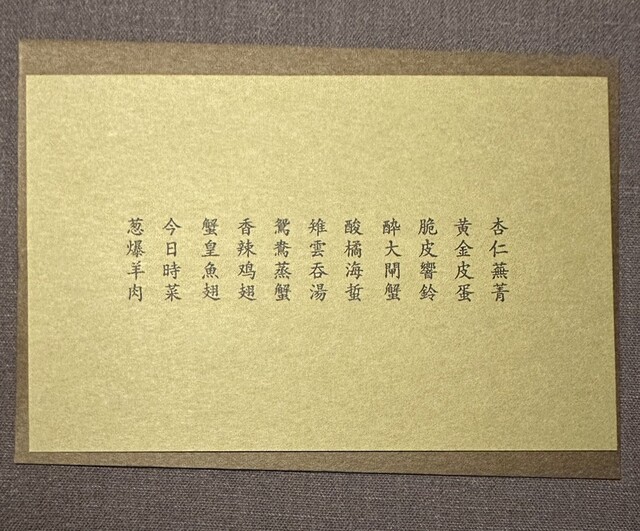 杏仁蕪菁
黃金皮蛋
脆皮響鈴
醉大閘蟹
酸橘海蜇
雉雲吞湯
鴛鴦蒸蟹
香辣鸡翅
蟹皇魚翅
今日時菜
葱爆羊肉